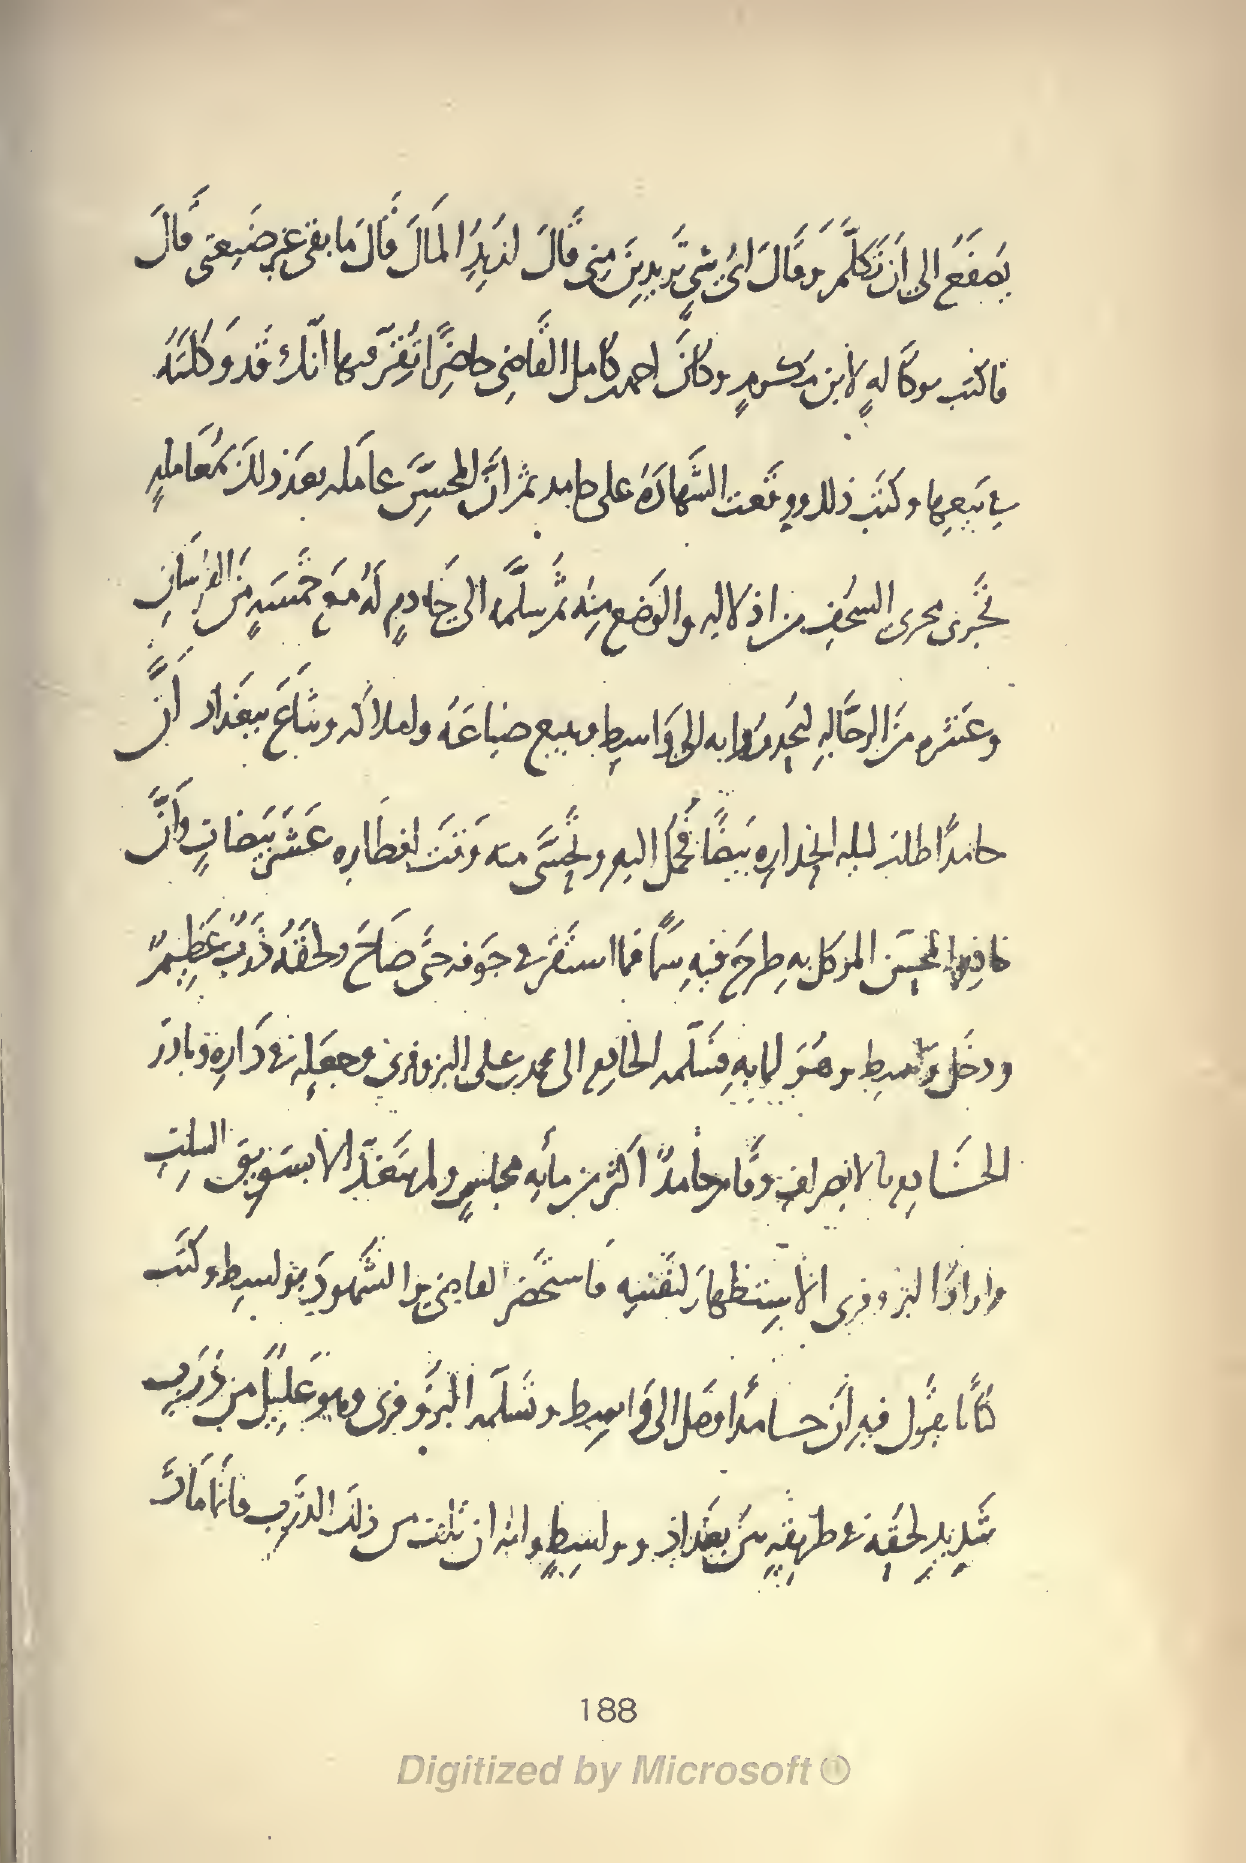 يصفع الى ان تكلم وقال اىّ شىء تريدين منى قال اريد المال قال ما بقى غير ضيعتى قال
فاكتب بوكاله لابن مكرم وكان احمد بن كامل القاضى حاضرًا تقرّ فيها انّك قد وكلته
فى بيعها وكتب ذلك ووقعت الشهادة على حامد ثم انّ المحسّن عامله بعد ذلك بمعامله
تجرى مجرى السخف من اذلاله والوضع منه ثم سلّمه الى خادم له مع خمسه من الفرسان
وعشره من الرجاله ليحدروا به الى واسط ويبيع ضياعه واملاكه وشاع ببغداد انّ
حامدًا طلب ليله انحداره بيضًا فحمل اليه وتحسّى منه وقت افطاره عشر بيضات وانّ
خادم المحسن الموكل به طرح فيه سمّا فما استقر فى جوفه حتّى صاح ولحقه ذرب عظيم
ودخل واسط وهو لمابه فتسلّمه الخادم الى محمد بن على البزوفرى وجعله فى داره وبادر
الخادم بالانصراف وقام حامدًا اكثر من مايه مجلس ولم يتغذّ الا بسويق السلت
واراد البزوفرى الاستظهار لنفسه فاستحضر القاضى والشهود بواسط وكتب
كتابًا يقول فيه ان حامدًا وصل الى واسط وتسلمه البزوفرى وهو عليل من ذرب
شديد لحقه فى طريقه بين بغداد وواسط وانه ان تلف من ذلك الذرب فانما مات
188
Digitized by Microsoft ®